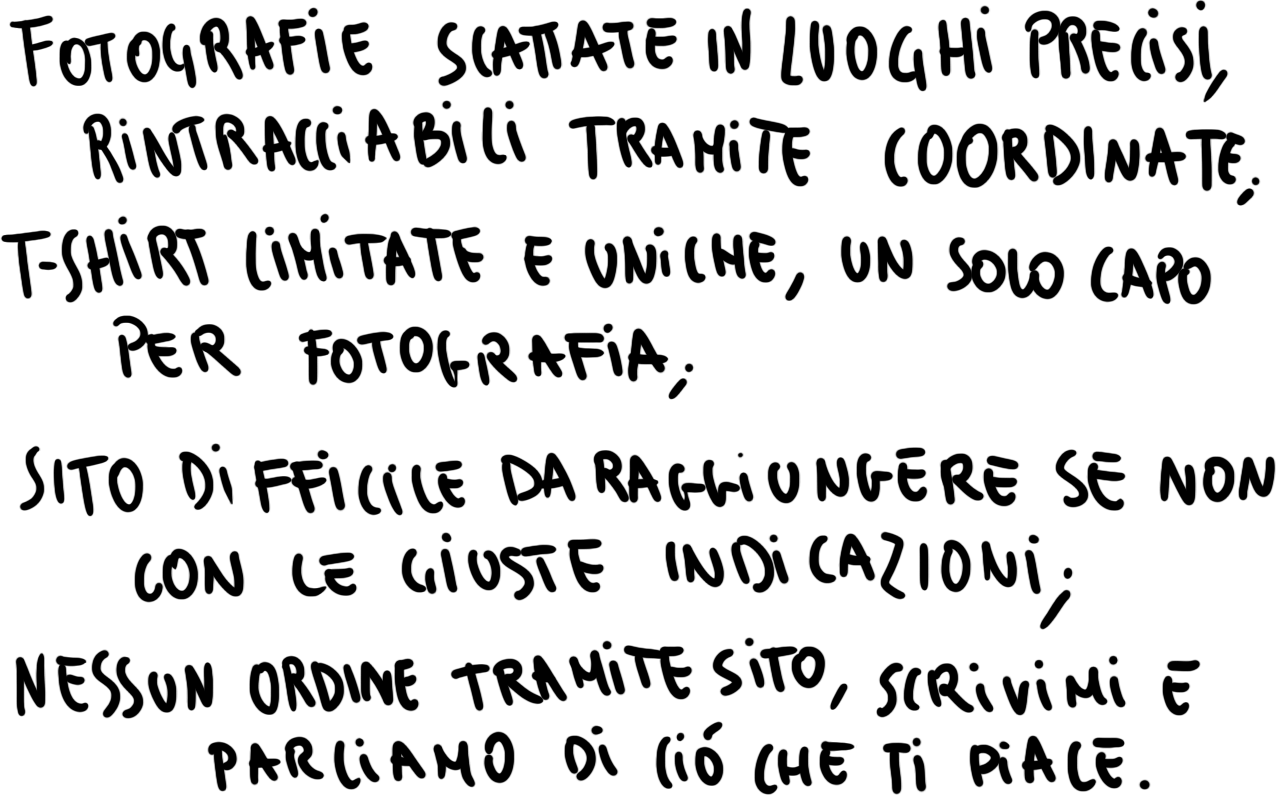 FOTOGRAFIE SCATTATE IN LUOGHI PRECISI,
RINTRACCIABILI TRAMITE COORDINATE;
T-SHIRT LIMITATE E UNICHE, UN SOLO CAPO
PER FOTOGRAFIA;
SITO DIFFICILE DA RAGGIUNGERE SE NON
CON LE GIUSTE INDICAZIONI;
NESSUN ORDINE TRAMITE SITO, SCRIVIMI E
PARLIAMO DI CIÓ CHE TI PIACE.